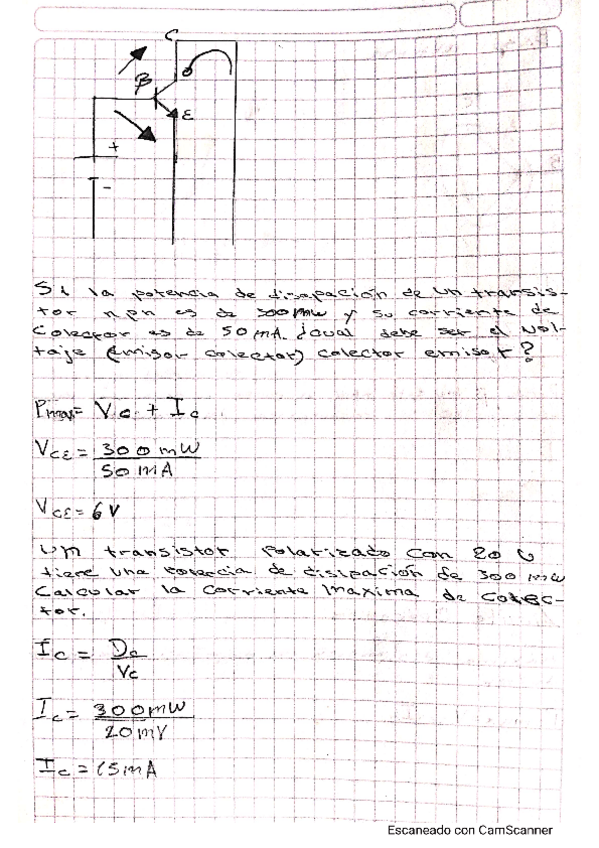 C
β
ε
+
-
Si la potencia de disipación de un transis-
tor npn es de 300 mw y su corriente de
colector es de 50 mA. ¿cual debe ser el vol-
taje (emisor colector) colector emisor?
Pmax= Vc + Ic
VCE = 300 mW
50 mA
VCE = 6V
Un transistor Polarizado con 20 v
tiene una potencia de disipación de 300 mw
Calcular la corriente maxima de colec-
tor.
Ic =
Vc
Ic = 300mW
20mV
Ic = 15mA
Escaneado con CamScanner